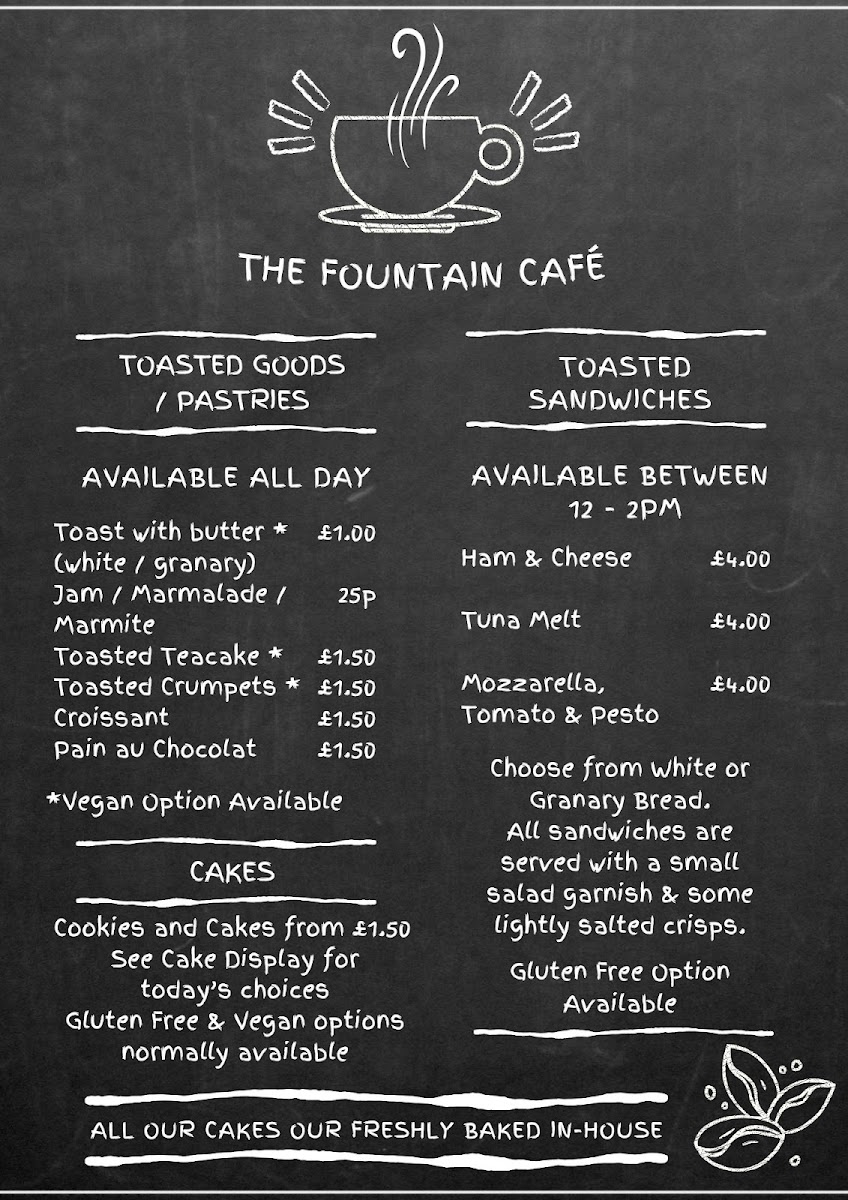 THE FOUNTAIN CAFÉ
TOASTED GOODS
/ PASTRIES
AVAILABLE ALL DAY
Toast with butter * £1.00
(white / granary)
Jam / Marmalade / 25p
Marmite
Toasted Teacake * £1.50
Toasted Crumpets * £1.50
Croissant £1.50
Pain au Chocolat £1.50
*Vegan Option Available
CAKES
Cookies and Cakes from £1.50
See Cake Display for
today's choices
Gluten Free & Vegan options
normally available
TOASTED
SANDWICHES
AVAILABLE BETWEEN
12 - 2PM
Ham & Cheese £4.00
Tuna Melt £4.00
Mozzarella, £4.00
Tomato & Pesto
Choose from White or
Granary Bread.
All sandwiches are
served with a small
salad garnish & some
lightly salted crisps.
Gluten Free Option
Available
ALL OUR CAKES OUR FRESHLY BAKED IN-HOUSE